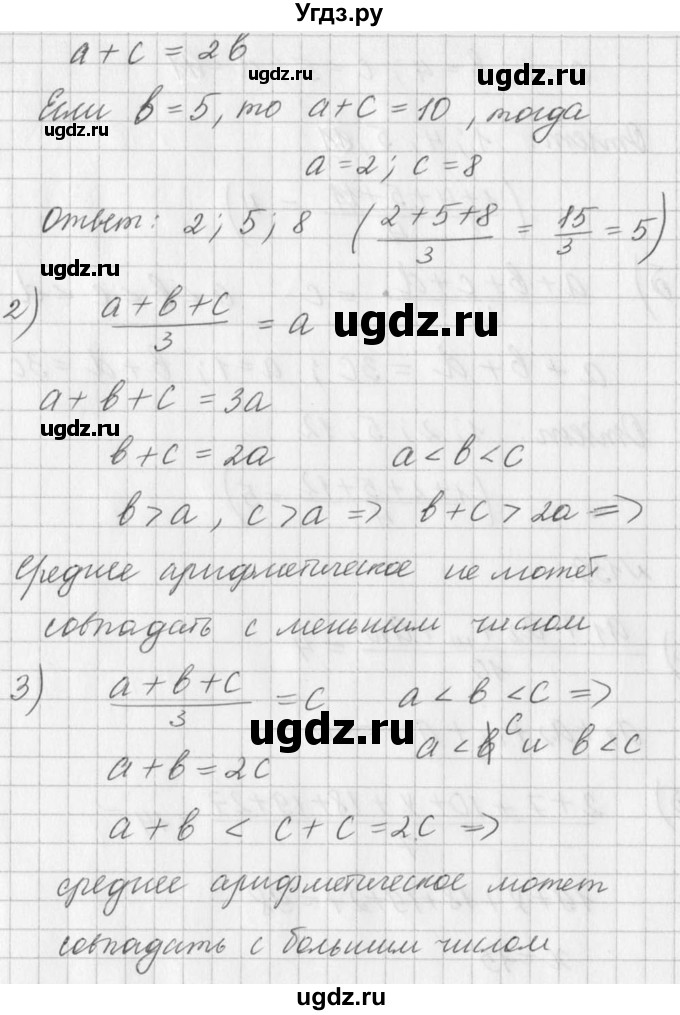 Угдз.ру
a + c = 2в
ugdz.ru ugdz.ru
Если в = 5, то a + c = 10, тогда
ugdz.ru
a = 2; c = 8
Ответ: 2; 5; 8 ( (2 + 5 + 8)/3 = 15/3 = 5 )
ugdz.ru
2) (a + в + c)/3 = a
ugdz.ru
a + в + c = 3a
ugdz.ru
в + c = 2a a < в < c
в > a, c > a => в + c > 2a =>
среднее арифметическое не может
совпадать с меньшим числом
3) (a + в + c)/3 = c a < в < c =>
ugdz.ru
a < c и в < c
a + в = 2c
a + в < c + c = 2c =>
среднее арифметическое может
совпадать с большим числом
ugdz.ru